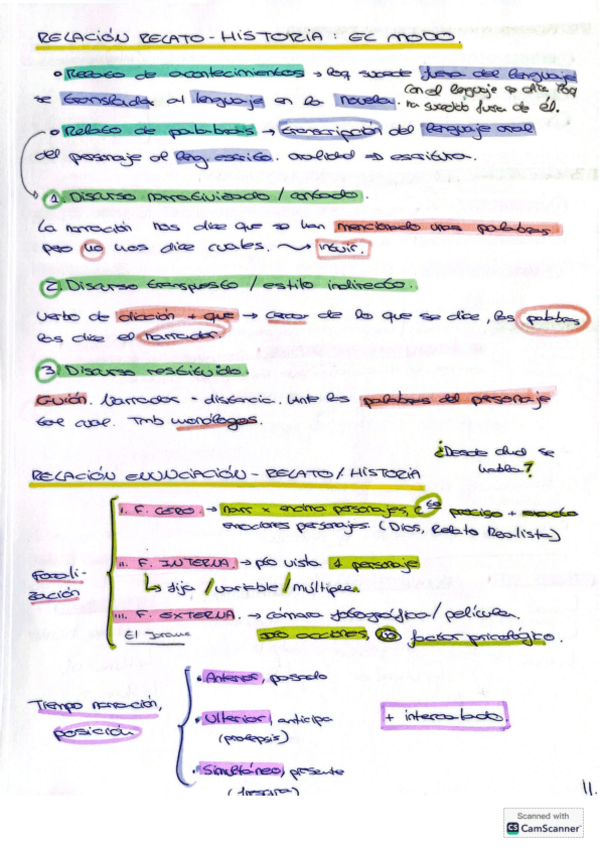 RELACIÓN RELATO - HISTORIA: EL MODO.
• Relato de acontecimientos → loq sucede fuera del lenguaje
se translada al lenguaje en la novela. Con el lenguaje se dice loq
ha sucedido fuera de él.
• Relato de palabras → transcripción del lenguaje oral
del personaje al leng. escrito. oralidad ⇒ escritura.
1. Discurso narrativizado / contado.
La narración nos dice que se han mencionado unas palabras
pero no nos dice cuales. → intuir.
2. Discurso transpuesto / estilo indirecto.
Verbo de dicción + que → cerca de lo que se dice, las palabras
las dice el narrador.
3. Discurso restituido.
Guión. Narrador - distancia. Unte las palabras del personaje
tal cual. Tmb monólogos.
¿Desde cual se
habla?
RELACIÓN ENUNCIACIÓN - RELATO / HISTORIA
Focali-
zación
I. F. CERO → narr x encima personajes, preciso +
emociones personajes. (Dios, Relato Realista)
II. F. INTERNA. → pto vista 1 personaje
↳ fija / variable / múltiple.
III. F. EXTERNA. → cámara fotográfica / película.
El Jarama solo acciones, no factor psicológico.
Tiempo narración,
posición
• Anterior, pasado
• Ulterior, anticipa
(prolepsis)
• Simultáneo, presente
+ intercalado.
11.
Scanned with
CS CamScanner